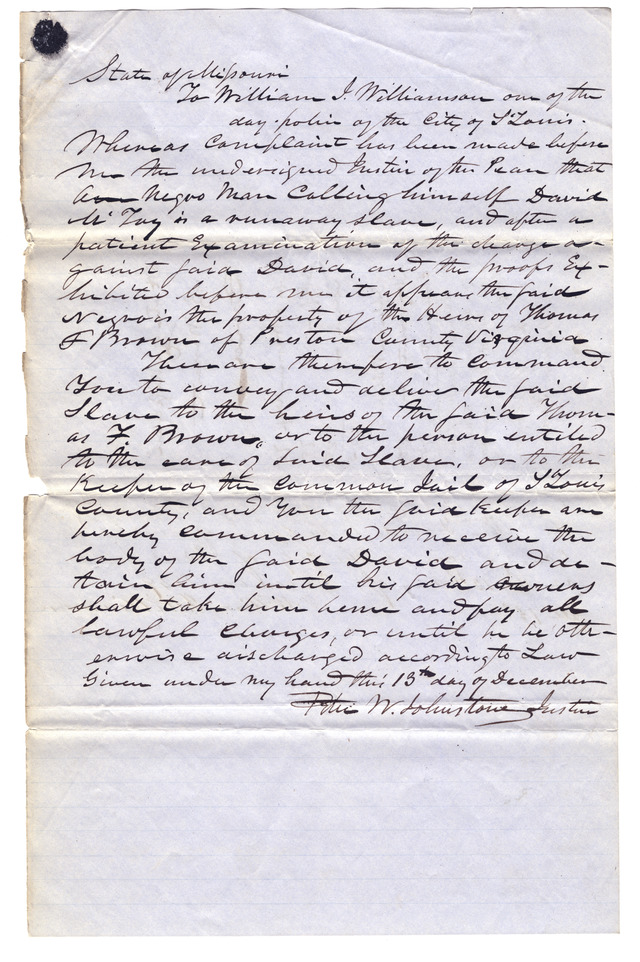 State of Missouri
To William J. Williamson one of the
day police of the City of St Louis.
Whereas Complaint has been made before
me the undersigned Justice of the Peace that
a Negro Man Calling himself David
Mc Foy is a runaway slave, and after a
patient Examination of the charge a-
gainst said David, and the proofs Ex-
hibited before me it appears the said
Negro is the property of the Heirs of Thomas
F Brown of Preston County Virginia.
These are therefore to command
You to convey and deliver the said
Slave to the heirs of the said Thom-
as F. Brown, or to the person entitled
to the care of said Slave, or to the
Keeper of the common Jail of St Louis
County, and You the said Keeper are
hereby commanded to receive the
body of the said David and de-
tain him until his said owners
shall take him hence and pay all
lawful charges, or until he be oth-
erwise discharged according to Law
Given under my hand this 13th day of December
Peter W. Johnstone Justice